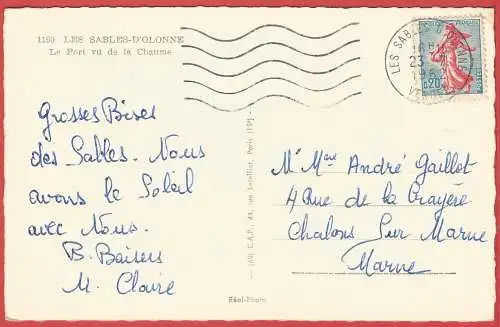 1190 LES SABLES-D'OLONNE
Le Port vu de la Chaume
LES SABLES D'OLONNE
23
196
0,20
Grosses Bises
des Sables. Nous
avons le Soleil
avec Nous.
B. Baisers
M. Claire
Mr Mme André Gaillot
4 Rue de la Crayère
Chalons Sur Marne
Marne
C.A.P., 44, rue Letellier, Paris (15e)
Réel-Photo